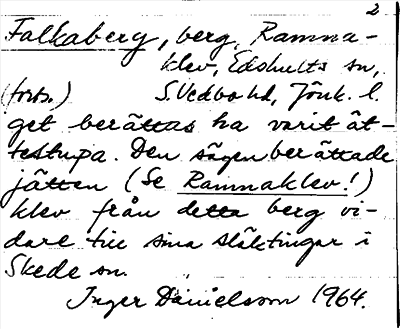 2
Falkaberg, berg, Ramna-
klev, Edshults sn,
(forts.) S. Vedbo hd, Jönk. l.
get berättas ha varit ät-
testupa. Den sägenberättade
jätten (Se Ramnaklev!)
klev från detta berg vi-
dare till sina släktingar i
Skede sn.
Inger Danielsson 1964.